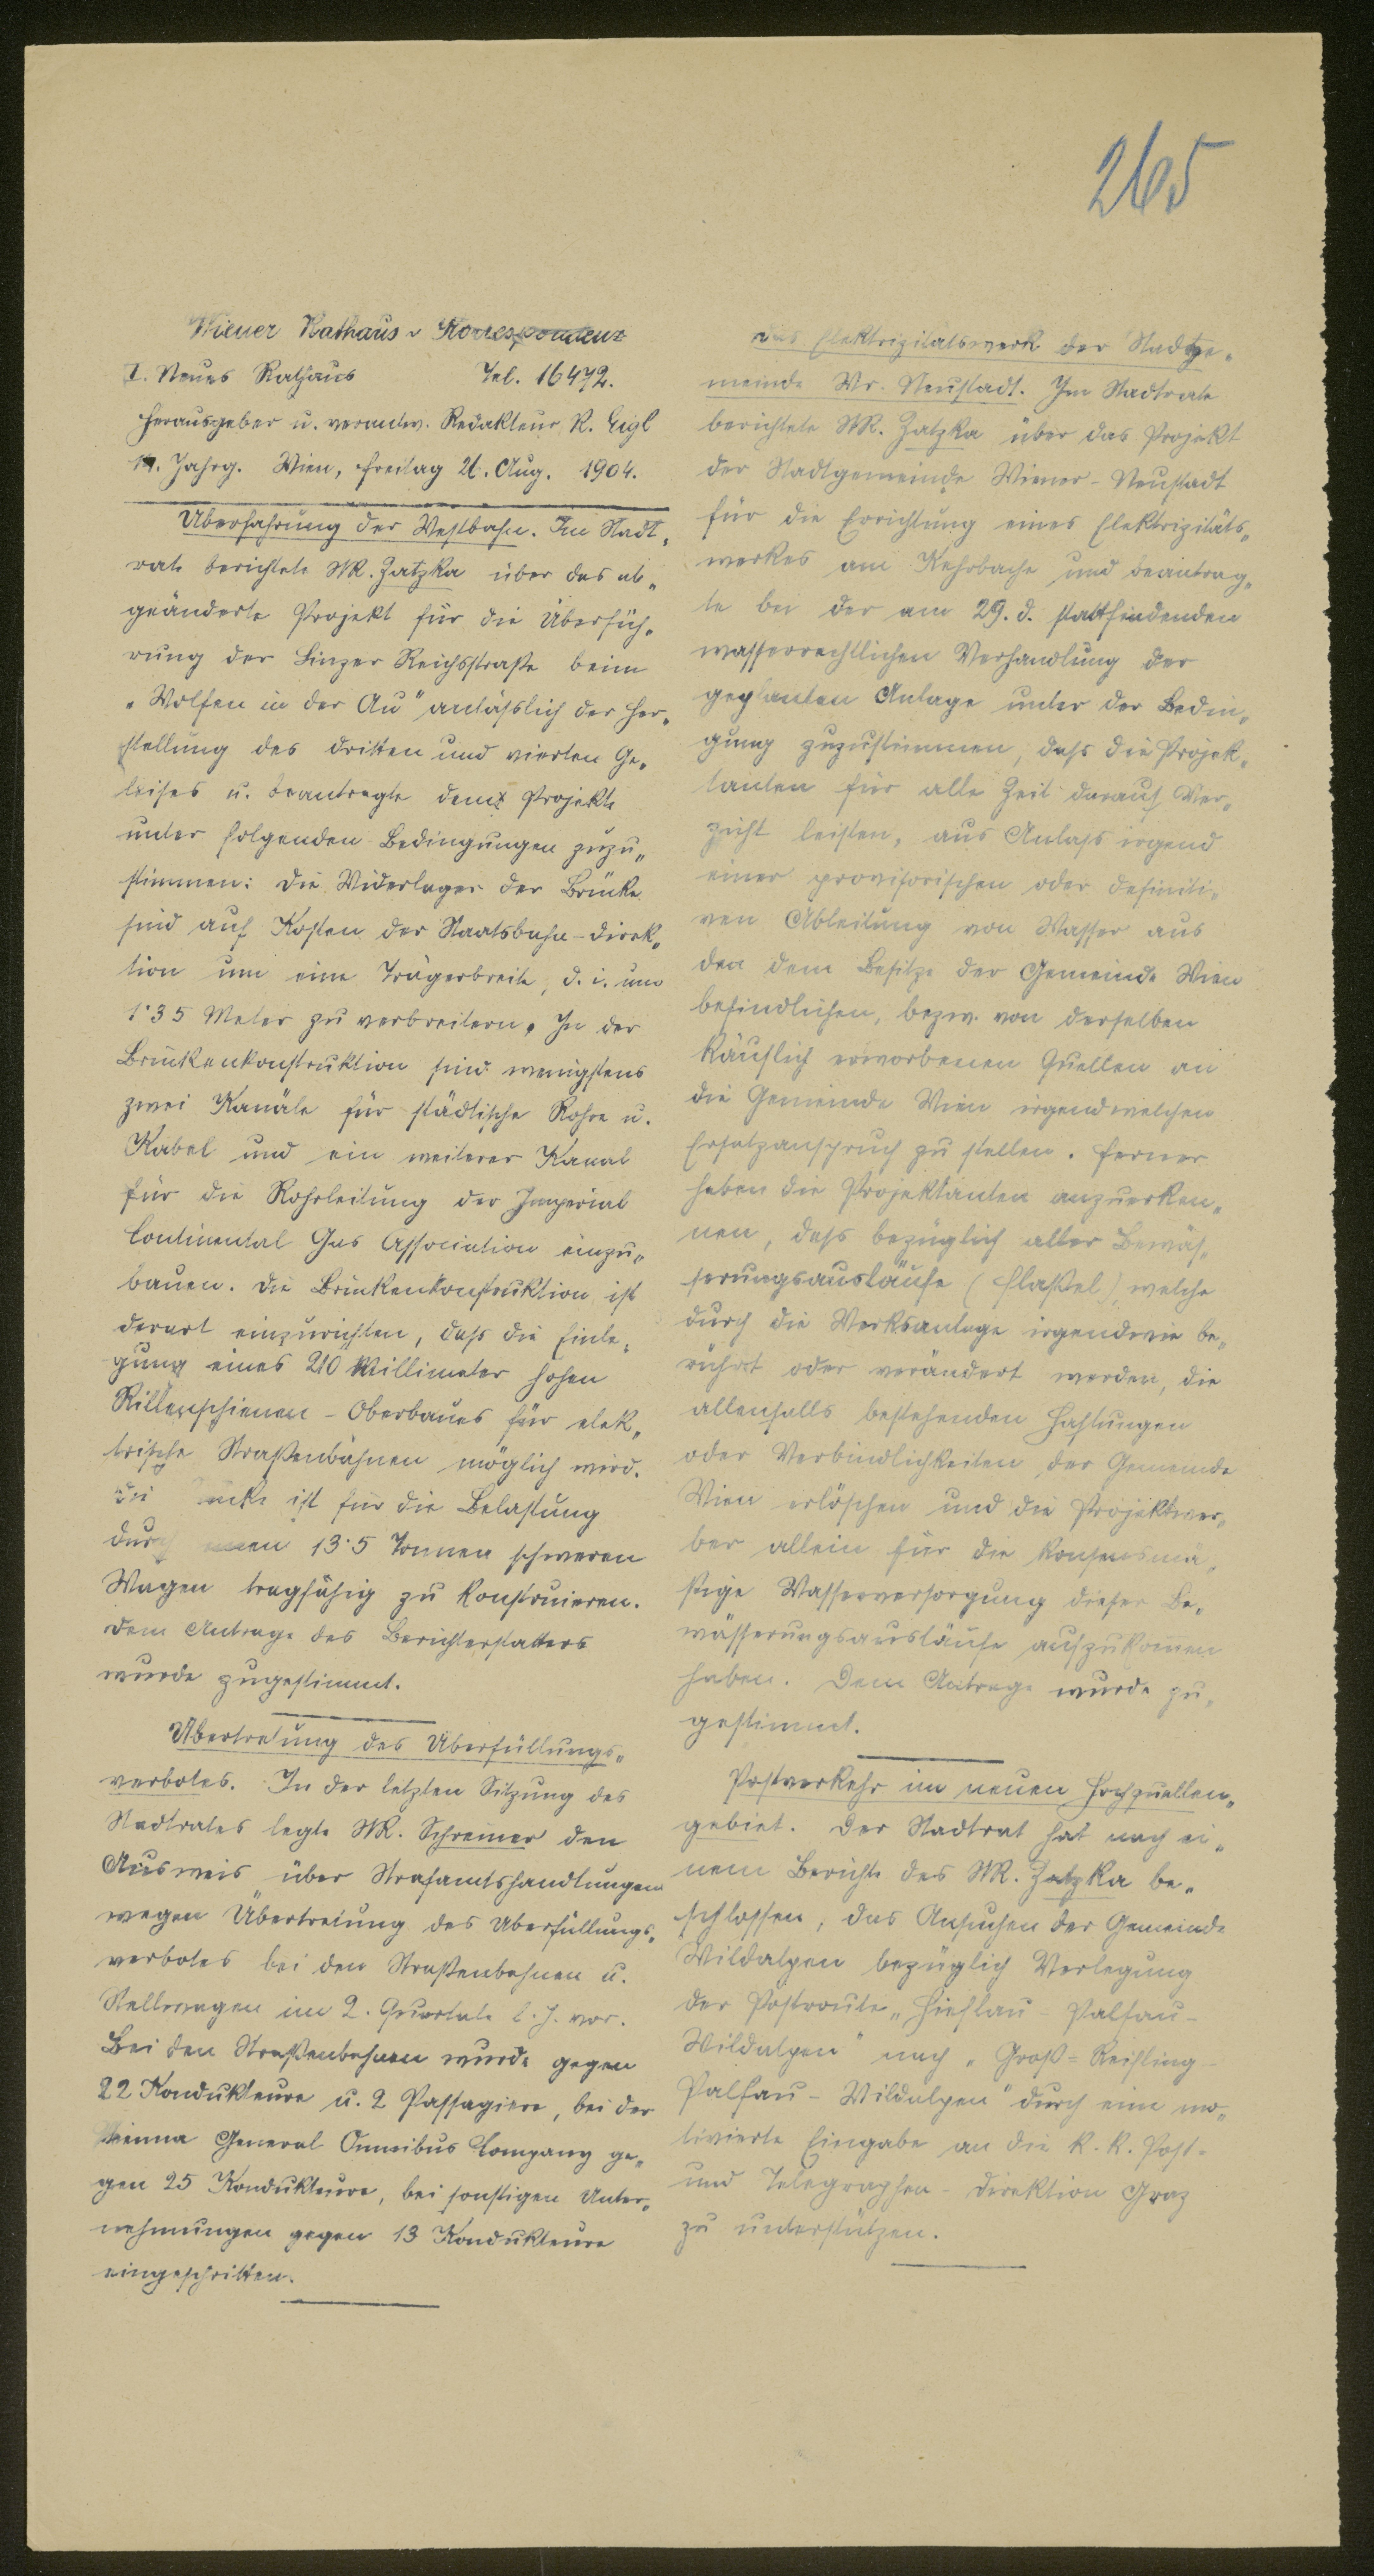 265
Wiener Rathaus-Korrespondenz
I. Neues Rathaus Tel. 16472.
Herausgeber u. verantw. Redakteur R. Eigl
Jahrg. Wien, Freitag 26. Aug. 1904.
Überfahrung der Westbahn. Im Stadt-
rate berichtete StR. Zatzka über das ab-
geänderte Projekt für die Überfüh-
rung der Linzer Reichsstraße beim
"Wolfen in der Au" anläßlich der Her-
stellung des dritten und vierten Ge-
leises u. beantragte dem Projekte
unter folgenden Bedingungen zuzu-
stimmen: Die Widerlager der Brücke
sind auf Kosten der Staatsbahn-Direk-
tion um eine Trägerbreite, d. i. um
1·35 Meter zu verbreitern. In der
Brückenkonstruktion sind wenigstens
zwei Kanäle für städtische Rohre u.
Kabel und ein weiterer Kanal
für die Rohrleitung der Imperial
Continental Gas Association einzu-
bauen. Die Brückenkonstruktion ist
derart einzurichten, daß die Einle-
gung eines 210 Millimeter hohen
Rillenschienen-Oberbaues für elek-
trische Straßenbahnen möglich wird.
Die Brücke ist für die Belastung
durch einen 13·5 Tonnen schweren
Wagen tragfähig zu konstruieren.
Dem Antrage des Berichterstatters
wurde zugestimmt.
Übertretung des Überfüllungs-
verbotes. In der letzten Sitzung des
Stadtrates legte StR. Schreiner den
Ausweis über Strafamtshandlungen
wegen Übertretung des Überfüllungs-
verbotes bei den Straßenbahnen u.
Stellwagen im 2. Quartale l. J. vor.
Bei den Straßenbahnen wurde gegen
22 Kondukteure u. 2 Passagiere, bei der
Vienna General Omnibus Company ge-
gen 25 Kondukteure, bei sonstigen Unter-
nehmungen gegen 13 Kondukteure
eingeschritten.
Das Elektrizitätswerk der Stadtge-
meinde Wr. Neustadt. Im Stadtrate
berichtete StR. Zatzka über das Projekt
der Stadtgemeinde Wiener-Neustadt
für die Errichtung eines Elektrizitäts-
werkes am Kehrbache und beantrag-
te bei der am 29. d. stattfindenden
wasserrechtlichen Verhandlung der
geplanten Anlage unter der Bedin-
gung zuzustimmen, daß die Projek-
tanten für alle Zeit darauf Ver-
zicht leisten, aus Anlaß irgend
einer provisorischen oder definiti-
ven Ableitung von Wasser aus
den dem Besitze der Gemeinde Wien
befindlichen, bezw. von derselben
käuflich erworbenen Quellen an
die Gemeinde Wien irgendwelchen
Ersatzanspruch zu stellen. Ferner
haben die Projektanten anzuerken-
nen, daß bezüglich aller Bewäs-
serungsausläufe (Flaßel), welche
durch die Werksanlage irgendwie be-
rührt oder verändert werden, die
allenfalls bestehenden Haftungen
oder Verbindlichkeiten der Gemeinde
Wien erlöschen und die Projektwer-
ber allein für die konsensmä-
ßige Wasserversorgung dieser Be-
wässerungsausläufe aufzukommen
haben. Dem Antrage wurde zu-
gestimmt.
Postverkehr im neuen Hochquellen-
gebiet. Der Stadtrat hat nach ei-
nem Berichte des StR. Zatzka be-
schlossen, das Ansuchen der Gemeinde
Wildalpen bezüglich Verlegung
der Postroute "Hieflau-Palfau-
Wildalpen" nach "Groß-Reifling-
Palfau-Wildalpen" durch eine mo-
tivierte Eingabe an die k. k. Post-
und Telegraphen-Direktion Graz
zu unterstützen.